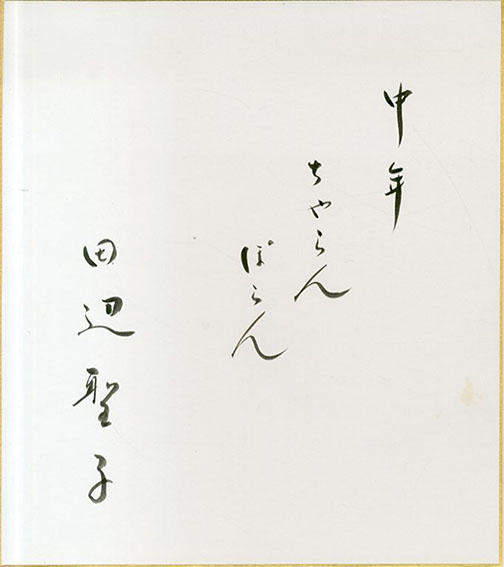 中年
ちゃらん
ぽらん
田辺聖子